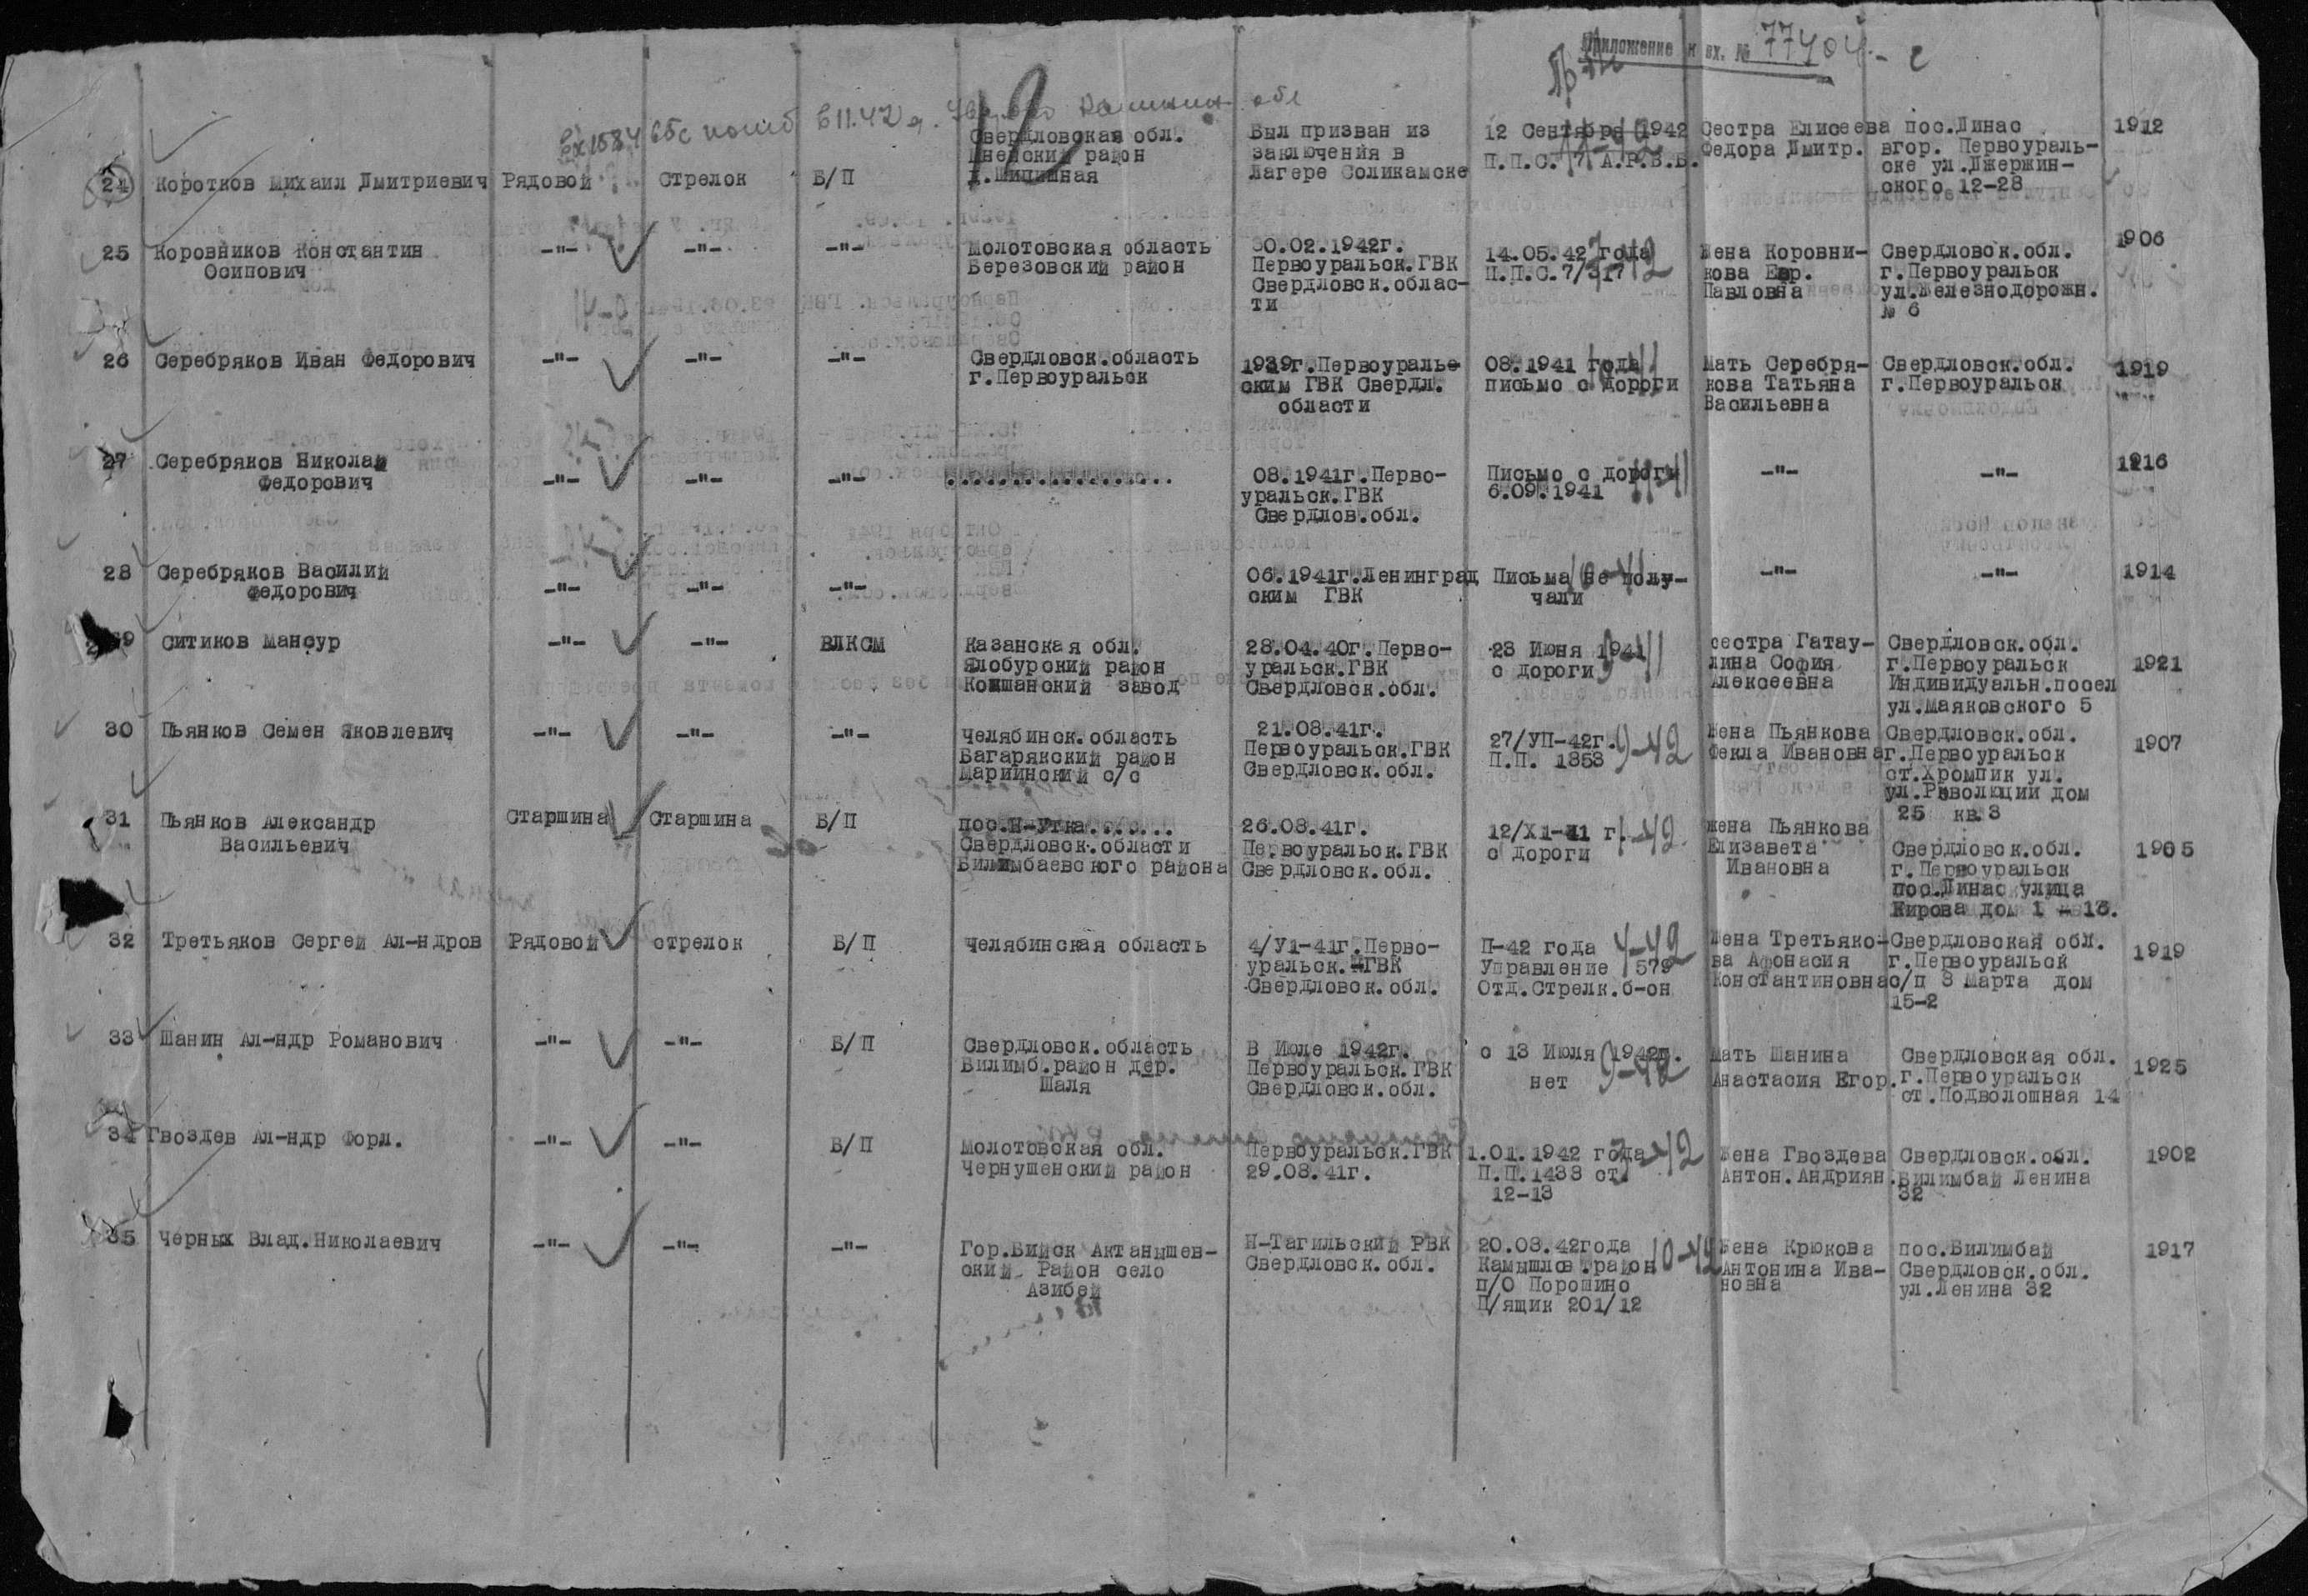 Приложение к вх. № 77404 - с
12
24 Коротков Михаил Дмитриевич Рядовой Стрелок Б/П
Свердловская обл.
район
Был призван из
заключения в
Лагере Соликамске
12 Сентября 1942
П.П.С. 7 А.Р.В.Б.
11-42
Сестра Елисеева
Федора Дмитр.
пос.Динас
вгор. Первоураль-
ске ул.Джержин-
ского 12-28
1912
25 Коровников Константин
Осипович
-"- -"- -"-
Молотовская область
Березовский район
30.02.1942г.
Первоуральск.ГВК
Свердловск.облас-
ти
14.05.42 года
П.П.С.7/317
7-42
Жена Коровни-
кова Евр.
Павловна
Свердловск.обл.
г.Первоуральск
ул.Железнодорожн.
№ 6
1906
26 Серебряков Иван Федорович
-"- -"- -"-
Свердловск.область
г.Первоуральск
1939г.Первоураль-
ским ГВК Свердл.
области
08.1941 года
письмо с дороги
Мать Серебря-
кова Татьяна
Васильевна
Свердловск.обл.
г.Первоуральск
1919
27 Серебряков Николай
Федорович
-"- -"- -"-
..................
08.1941г.Перво-
уральск.ГВК
Свердлов.обл.
Письмо с дороги
6.09.1941
11-41
-"- -"-
1916
28 Серебряков Василий
Федорович
-"- -"- -"-
06.1941г.Ленинград
ским ГВК
Письма не полу-
чали
10-41
-"- -"-
1914
29 Ситиков Мансур
-"- -"- ВЛКСМ
Казанская обл.
Ялобурский район
Кокшанский завод
28.04.40г.Перво-
уральск.ГВК
Свердловск.обл.
28 Июня 1941
с дороги
сестра Гатау-
лина София
Алексеевна
Свердловск.обл.
г.Первоуральск
Индивидуальн.посел
ул.Маяковского 5
1921
30 Пьянков Семен Яковлевич
-"- -"- -"-
Челябинск.область
Багарякский район
Мариинский с/с
21.08.41г.
Первоуральск.ГВК
Свердловск.обл.
27/УП-42г.
П.П. 1353
9-42
Жена Пьянкова
Фекла Ивановна
Свердловск.обл.
г.Первоуральск
ст.Хромпик ул.
ул.Революции дом
25 кв.3
1907
31 Пьянков Александр
Васильевич
Старшина Старшина Б/П
пос.Н-Утка.......
Свердловск.области
Билимбаевского района
26.08.41г.
Первоуральск.ГВК
Свердловск.обл.
12/X1-41 г.
с дороги
1-42
жена Пьянкова
Елизавета
Ивановна
Свердловск.обл.
г.Первоуральск
пос.Динас улица
Кирова дом 1 - 13.
1905
32 Третьяков Сергей Ал-ндров Рядовой стрелок Б/П
Челябинская область
4/У1-41г.Перво-
уральск.ГВК
Свердловск.обл.
П-42 года
Управление 579
Отд.Стрелк.б-он
4-42
Жена Третьяко-
ва Афонасия
Константиновна
Свердловская обл.
г.Первоуральск
с/п 8 Марта дом
15-2
1919
33 Шанин Ал-ндр Романович
-"- -"- Б/П
Свердловск.область
Билимб.район дер.
Шаля
В Июле 1942г.
Первоуральск.ГВК
Свердловск.обл.
с 13 Июля 1942г.
нет
9-42
Мать Шанина
Анастасия Егор.
Свердловская обл.
г.Первоуральск
ст.Подволошная 14
1925
34 Гвоздев Ал-ндр Форл.
-"- -"- Б/П
Молотовская обл.
Чернушенский район
Первоуральск.ГВК
29.08.41г.
1.01.1942 года
П.П.1433 ст
12-13
3-42
Жена Гвоздева
Антон.Андриян.
Свердловск.обл.
Билимбай Ленина
32
1902
35 Черных Влад.Николаевич
-"- -"- -"-
Гор.Бийск Актанышев-
ский Район село
Азибей
Н-Тагильский РВК
Свердловск.обл.
20.08.42года
Камышлов.район
п/о Порошино
П/ящик 201/12
10-42
Жена Крюкова
Антонина Ива-
новна
пос.Билимбай
Свердловск.обл.
ул.Ленина 32
1917